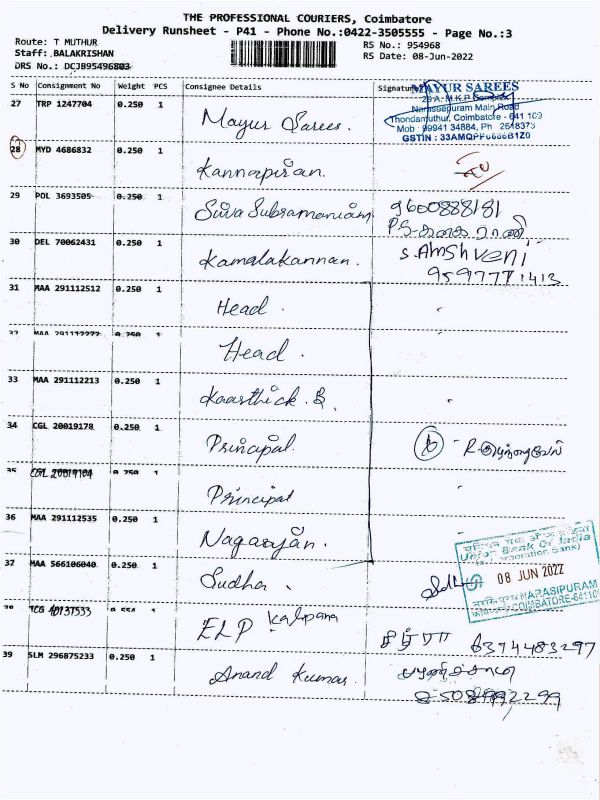 THE PROFESSIONAL COURIERS, Coimbatore
Delivery Runsheet - P41 - Phone No.:0422-3505555 - Page No.:3
Route: T MUTHUR
RS No.: 954968
Staff: BALAKRISHAN
RS Date: 08-Jun-2022
DRS No.: DCJB95496803
S No Consignment No Weight PCS Consignee Details Signature
MAYUR SAREES
Narasepuram Main Road
Thondamuthur, Coimbatore - 641 109
Mob : 99941 34884, Ph
27 TRP 1247704 0.250 1 Mayur Sarees.
28 MYD 4686832 0.250 1 Kannapiran.
29 POL 3693505 0.250 1 Siva Subramaniam 9600888181
30 DEL 70062431 0.250 1 Kamalakannan. S. Amshveni
9597771413
31 MAA 291112512 0.250 1 Head.
Head.
33 MAA 291112213 0.250 1 Kaarthick. B.
34 CGL 20019178 0.250 1 Principal.
35 CGL 0.250 1 Principal
36 MAA 291112535 0.250 1 Nagarajan.
Union Bank Of India
08 JUN 2022
NARASIPURAM
COIMBATORE-641109
37 MAA 566106040 0.250 1 Sudha.
ELP Kalpana சித்ரா 6374483297
39 SLM 296875233 0.250 1 Anand Kumar.